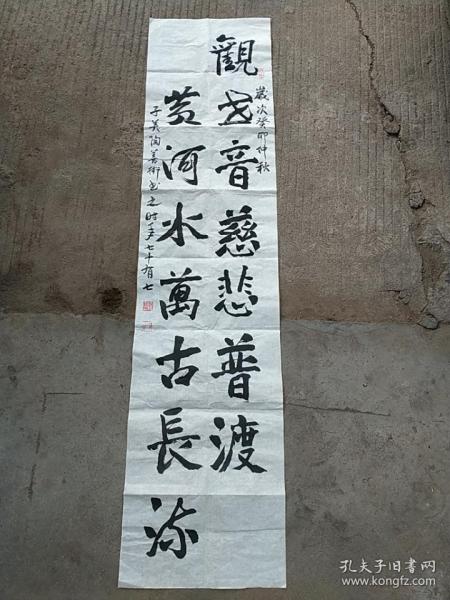 觀世音慈悲普渡
黄河水萬古長流
歲次癸卯仲秋
子美陶善術書之時年七十有七
孔夫子旧书网
www.kongfz.com